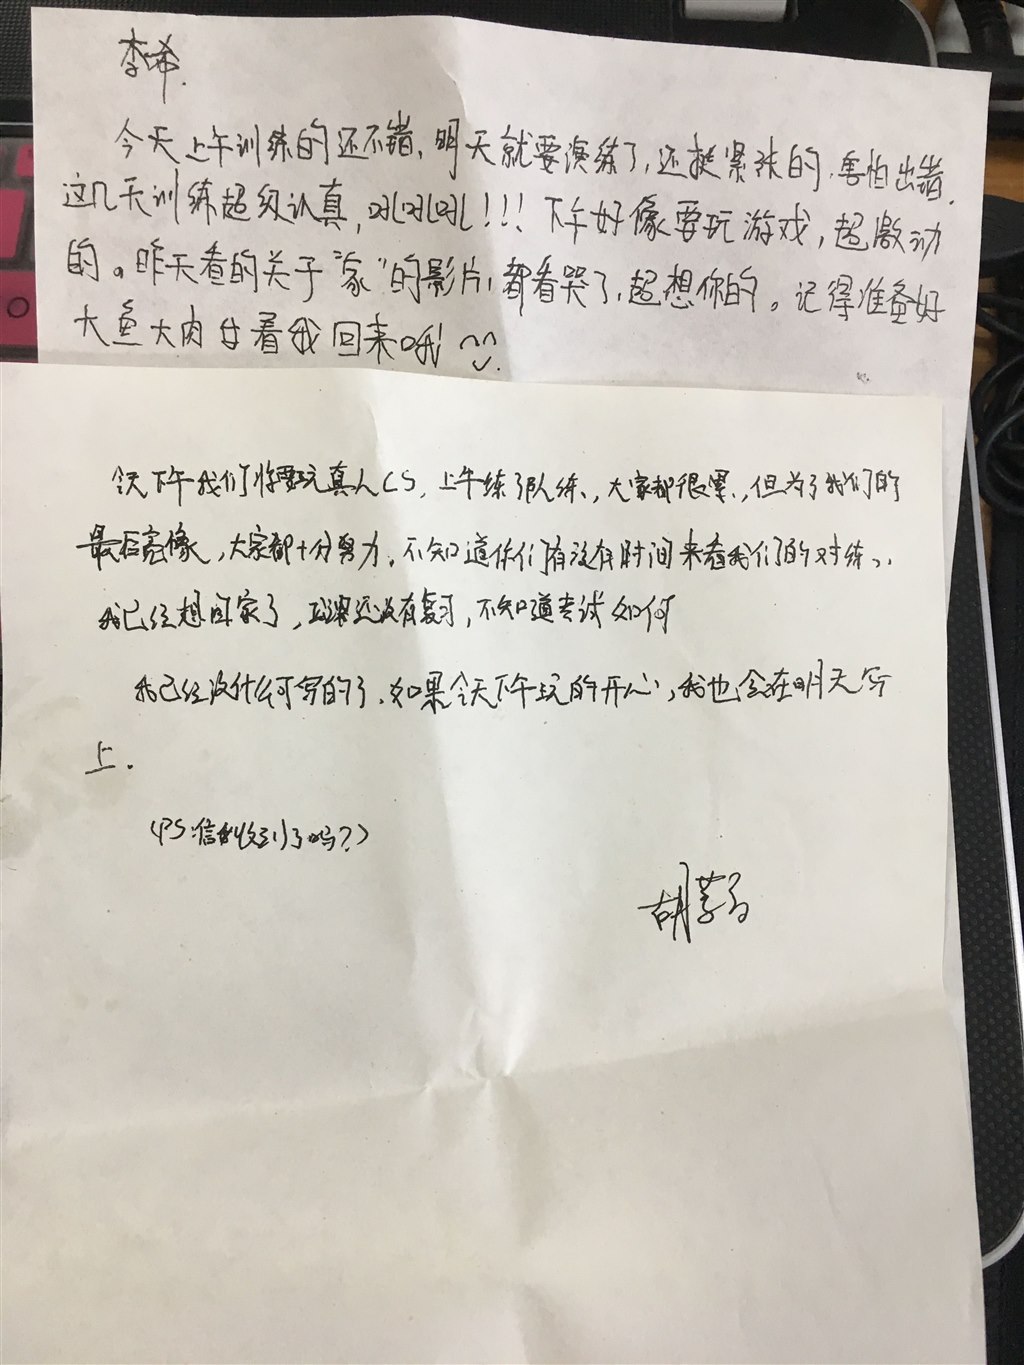 李希.
今天上午训练的还不错、明天就要演练了,还挺紧张的,害怕出错.
这几天训练超级认真,吼吼吼!!!下午好像要玩游戏,超激动
的。昨天看的关于"家"的影片,都看哭了,超想你的。记得准备好
大鱼大肉 着我回来哦! ^^
今天下午我们将要玩真人CS,上午练了队练、,大家都很累、,但为了我们的
最后 像,大家都十分努力.不知道你们有没有时间来看我们的对练、.
我已经想回家了, 还没有复习,不知道考试如何
我已经没什么可写的了,如果今天下午玩的开心,我也会在明天写
上.
(PS:信 收到了吗?)
胡